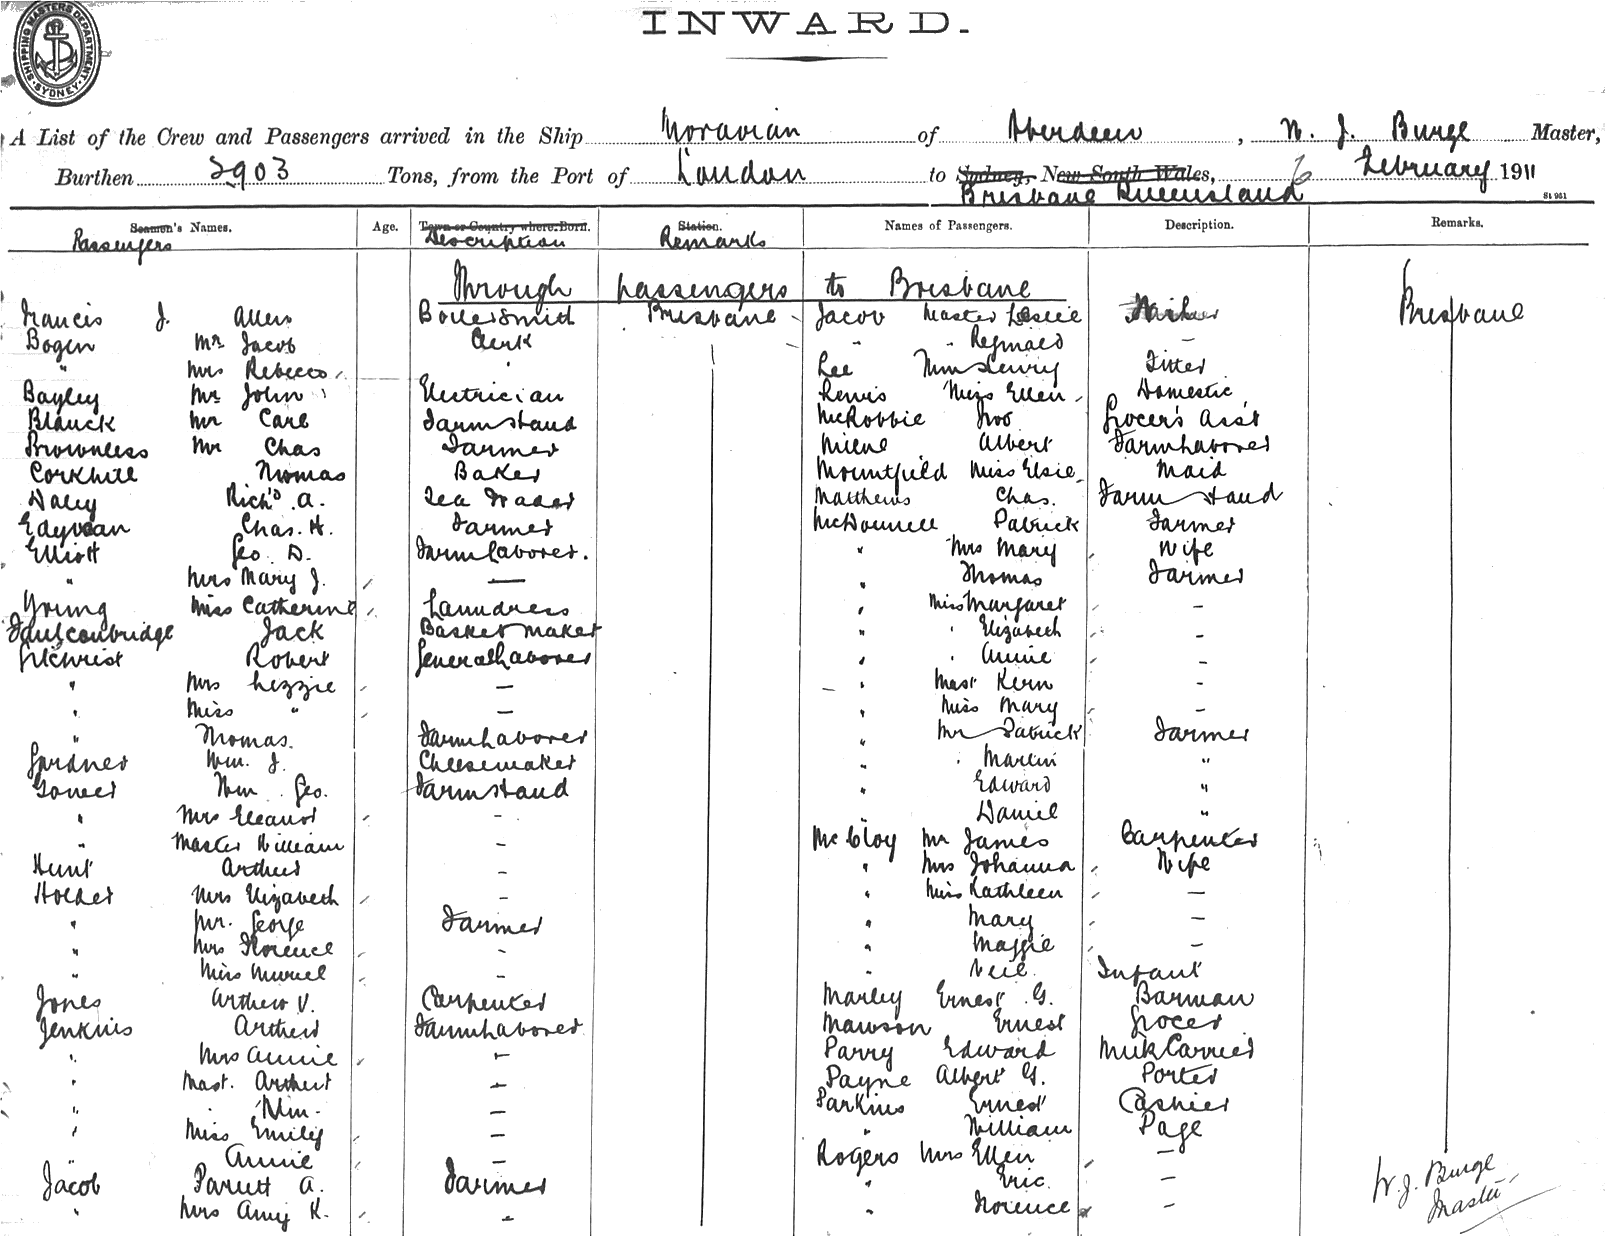 SHIPPING MASTERS DEPARTMENT. SYDNEY.
INWARD.
A List of the Crew and Passengers arrived in the Ship Moravian of Aberdeen, W. J. Burge Master,
Burthen 2903 Tons, from the Port of London to Sydney, New South Wales, 6 February 1911
Brisbane Queensland
St 961
Seamen's Names. Age. Town or Country where Born. Station. Names of Passengers. Description. Remarks.
Passengers Description Remarks
Through passengers to Brisbane
Francis J. Allen Boilersmith Brisbane Jacob Master Leslie Brisbane
Bogen Mr Jacob Clerk " " Reginald -
" Mrs Rebecca " Lee Wm Henry Fitter
Bayley Mr John Electrician Lewis Miss Ellen Domestic
Blanck Mr Carl Farm Hand McRobbie Jno Grocer's Ass't
Brownless Mr Chas Farmer Milne Albert Farm Laborer
Corkhill Thomas Baker Mountfield Miss Elsie Maid
Daley Rich'd A. Tea Trader Matthews Chas. Farm Hand
Edyvean Chas. H. Farmer McDonnell Patrick Farmer
Elliott Geo. D. Farm Laborer. " Mrs Mary Wife
" Mrs Mary J. — " Thomas Farmer
Young Miss Catherine Laundress " Miss Margaret -
Faulconbridge Jack Basket maker " " Elizabeth -
Gilchrist Robert General Laborer " " Annie -
" Mrs Lizzie — " Mast Kern -
" Miss " — " Miss Mary -
" Thomas. Farm Laborer " Mr Patrick Farmer
Gardner Wm. J. Cheesemaker " " Martin "
Gower Wm. Geo. Farm Hand " Edward "
" Mrs Eleanor - " Daniel "
" Master William - McCloy Mr James Carpenter
Hunt Arthur - " Mrs Johanna Wife
Holder Mrs Elizabeth - " Miss Kathleen —
" Mr. George Farmer " Mary —
" Mrs Florence - " Maggie —
" Miss Muriel - " Neil. Infant
Jones Arthur V. Carpenter Marley Ernest G. Barman
Jenkins Arthur Farm Laborer Mawson Ernest Grocer
" Mrs Annie — Parry Edward Milk Carrier
" Mast. Arthur — Payne Albert G. Porter
" " Wm. — Parkins Ernest Cashier
" Miss Emily — " William Page
" Annie — Rogers Mrs Ellen —
Jacob A. Farmer " Eric —
" Mrs Amy K. - " Florence -
W. J. Burge
Master